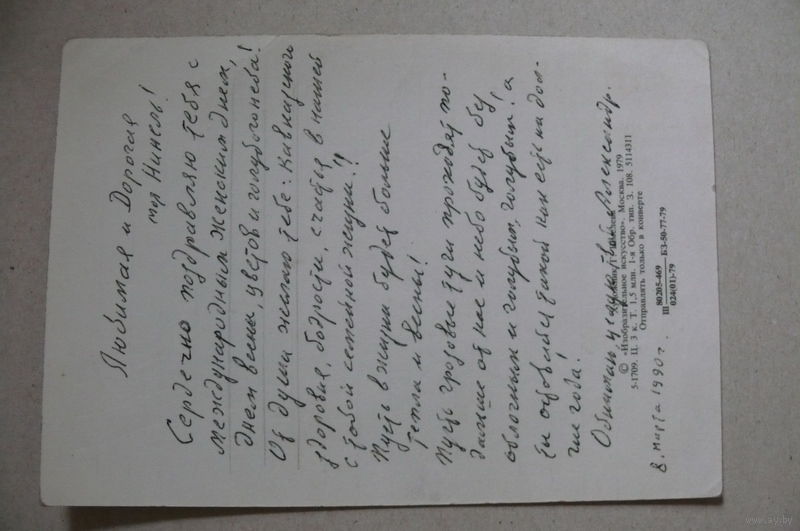 Любимая и Дорогая
моя Нинель!
Сердечно поздравляю тебя с
международным женским днем,
днем весны, цветов и голубого неба!
От души желаю тебе: кавказского
здоровия, бодрости, счастья в нашей
с тобой семейной жизни!!
Пусть в жизни будет больше
тепла и весны!
Пусть грозовые тучи проходят по-
дальше от нас и небо будет без
облачным и голубым, голубым! а
ты оставайся такой как есть на дол-
гие года!
Обнимаю, целую твой Александр.
8. марта 1990 г.
Художник
© «Изобразительное искусство». Москва. 1979
5-1709. Ц. 3 к. Т. 1,5 млн. 1-я Обр. тип. З. 108. 5114311
Отправлять только в конверте
Ш 80205-469 БЗ-50-77-79
024(01)-79
www.ay.by